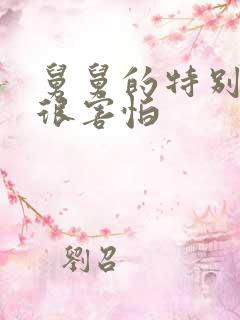 舅舅的特别
很害怕
劉召